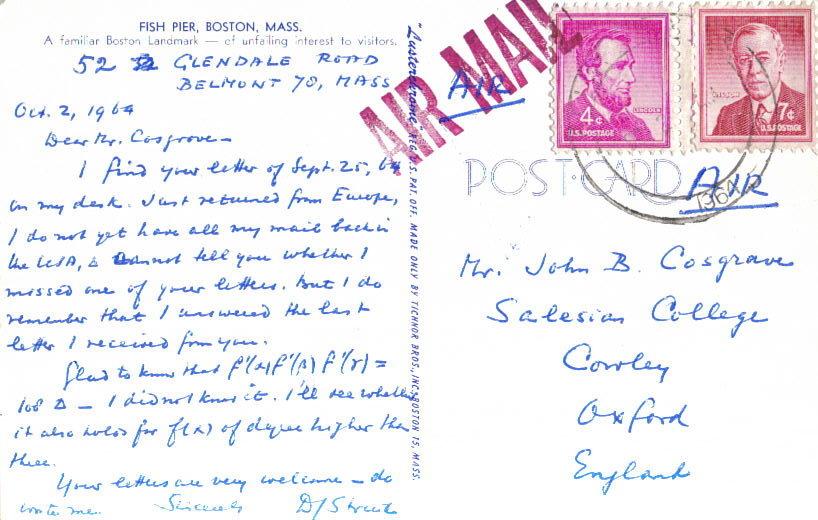 FISH PIER, BOSTON, MASS.
A familiar Boston Landmark — of unfailing interest to visitors.
52 GLENDALE ROAD
BELMONT 78, MASS
Oct. 2, 1964
Dear Mr. Cosgrave —
I find your letter of Sept. 25, 64
on my desk. Just returned from Europe,
I do not yet have all my mail back in
the USA, & cannot tell you whether I
missed one of your letters. But I do
remember that I answered the last
letter I received from you.
Glad to know that f'(α)f'(β)f'(γ) =
108 Δ — I did not know it. I'll see whether
it also holds for f(x) of degree higher than
three.
Your letters are very welcome — do
write me. Sincerely DJ Struik
"Lusterchrome" REG. U.S. PAT. OFF. MADE ONLY BY TICHNOR BROS., INC., BOSTON 15, MASS.
AIR MAIL
AIR
4¢
LINCOLN
U.S. POSTAGE
WILSON
7¢
U.S. POSTAGE
1964
POST-CARD
AIR
Mr. John B. Cosgrave
Salesian College
Cowley
Oxford
England